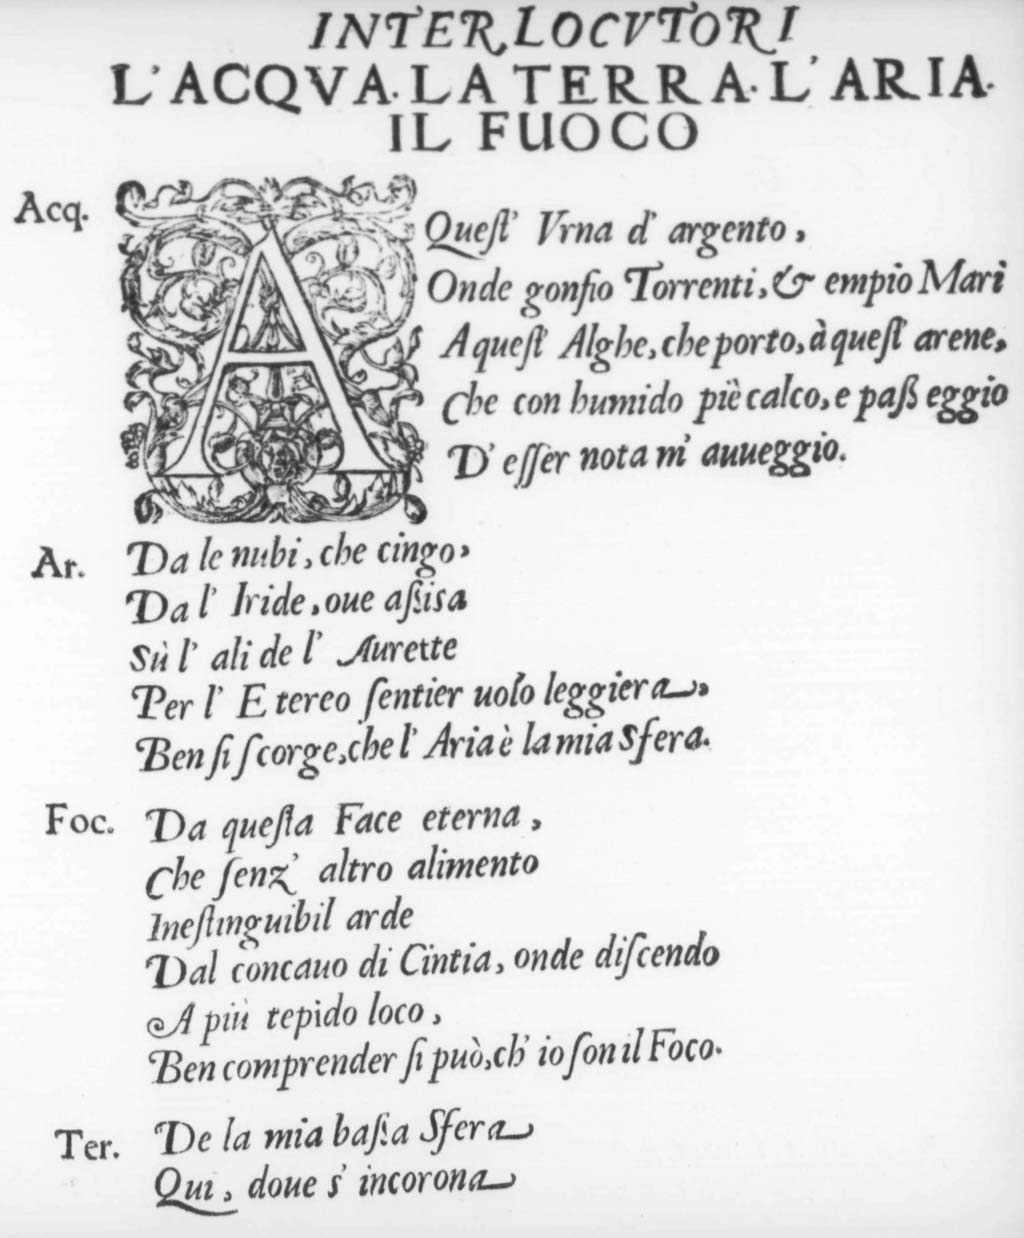 INTERLOCVTORI
L'ACQVA. LA TERRA. L'ARIA.
IL FUOCO
Acq. AQueſt' Vrna d' argento,
Onde gonfio Torrenti, & empio Mari
A queſt' Alghe, che porto, à queſt' arene,
Che con humido piè calco, e paßeggio
D' eſſer nota m' auueggio.
Ar. Da le nubi, che cingo,
Da l' Iride, oue aßisa
Sù l' ali de l' Aurette
Per l' Etereo ſentier uolo leggiera,
Ben ſi ſcorge, che l' Aria è la mia Sfera.
Foc. Da queſta Face eterna,
Che ſenz' altro alimento
Ineſtinguibil arde
Dal concauo di Cintia, onde diſcendo
A più tepido loco,
Ben comprender ſi può, ch' io ſon il Foco.
Ter. De la mia baſſa Sfera
Qui, doue s' incorona